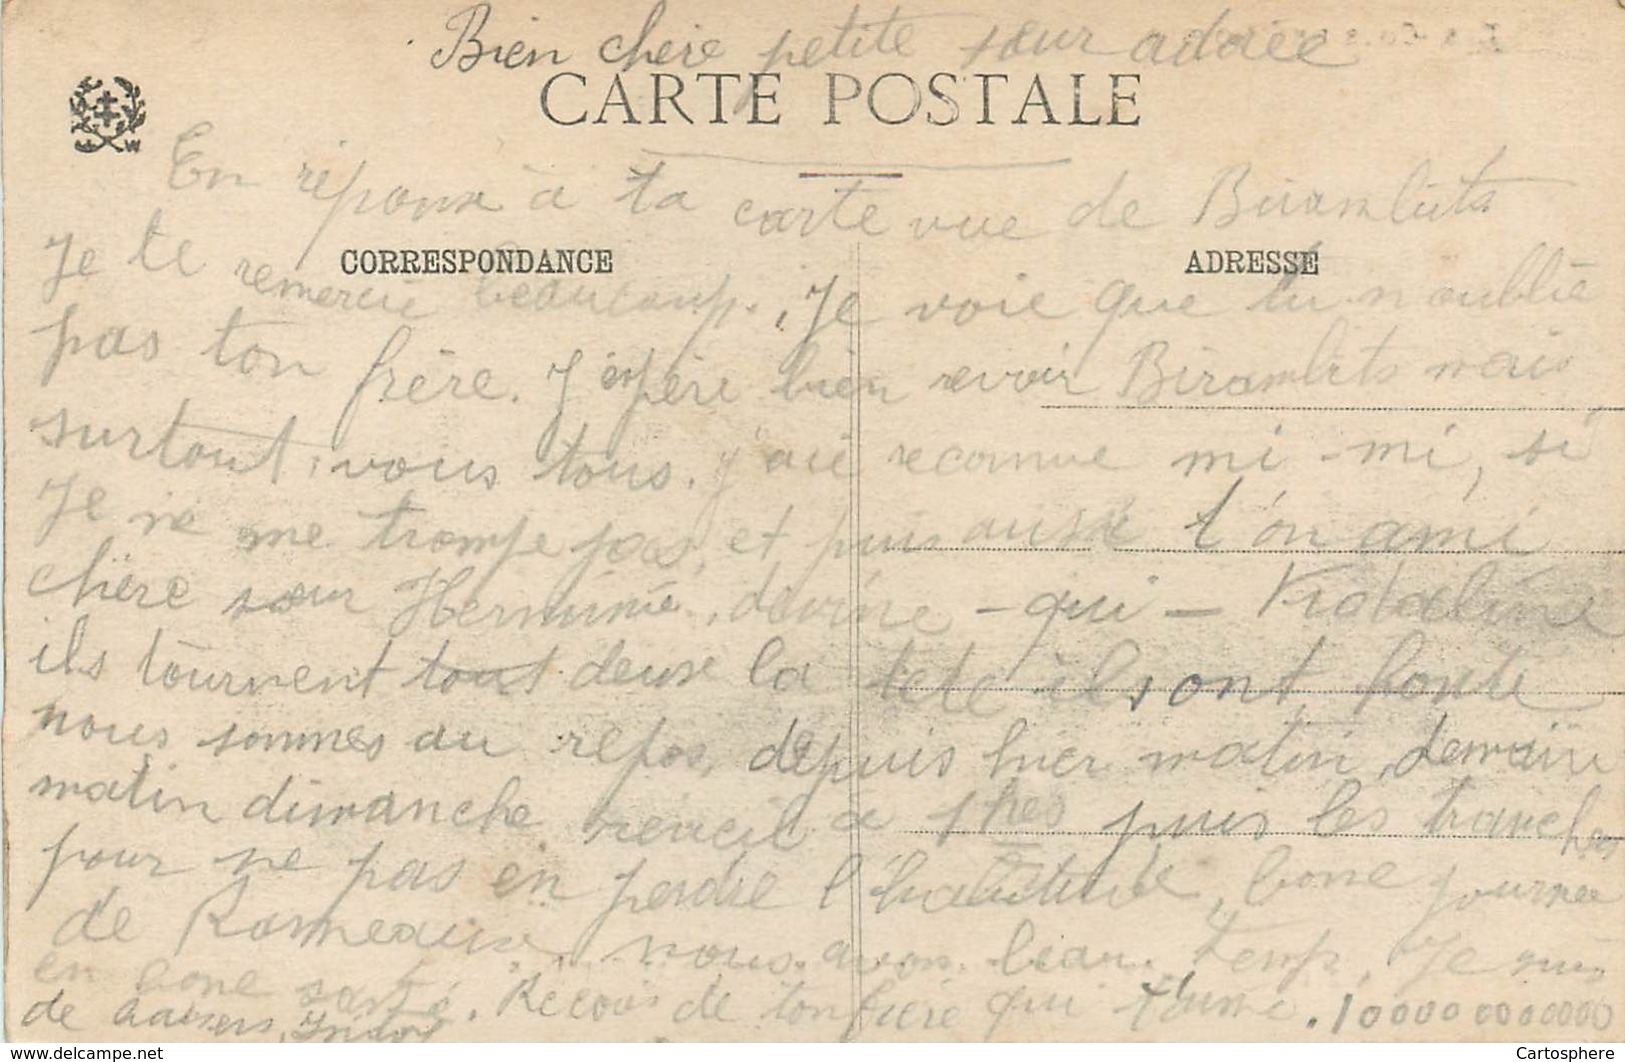 Bien chère petite sœur adorée
CARTE POSTALE
W
En réponse à ta carte vue de Birambits
CORRESPONDANCE
ADRESSE
Je te remercie beaucoup. Je voie que tu n'oublie
pas ton frère. J'éspère bien revoir Birambits mais
surtout vous tous. j'aie reconnue mi-mi, si
Je ne me trompe pas, et puis aussi t'on ami
chère sœur Herminie, devine - qui - Fidaline
ils tournent tout deux la tête ils ont honte
nous sommes au repos, depuis hier matin, demain
matin dimanche réveil à 1hes puis les tranchés
pour ne pas en perdre l'habitude, bone journée
de Rameaux, nous avon beau temp. Je suis
en bone santé. Recois de ton frère qui t'aime. 10000000000000
de baisers,
www.delcampe.net
Cartosphere